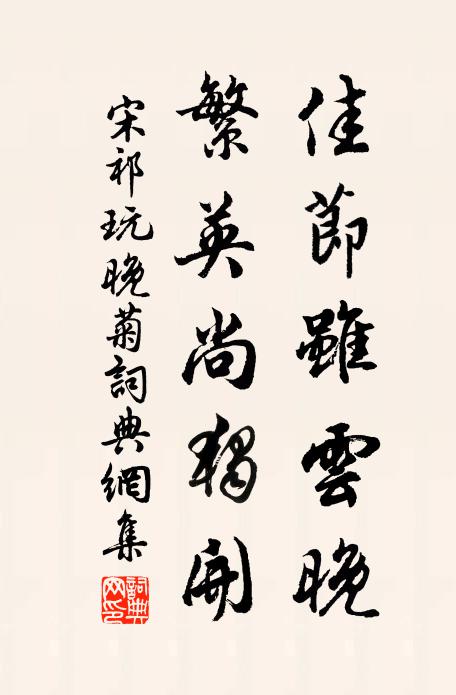 佳節雖雲晚
繁英尚獨開
宋祁玩晚菊詞典網集
詞典網印